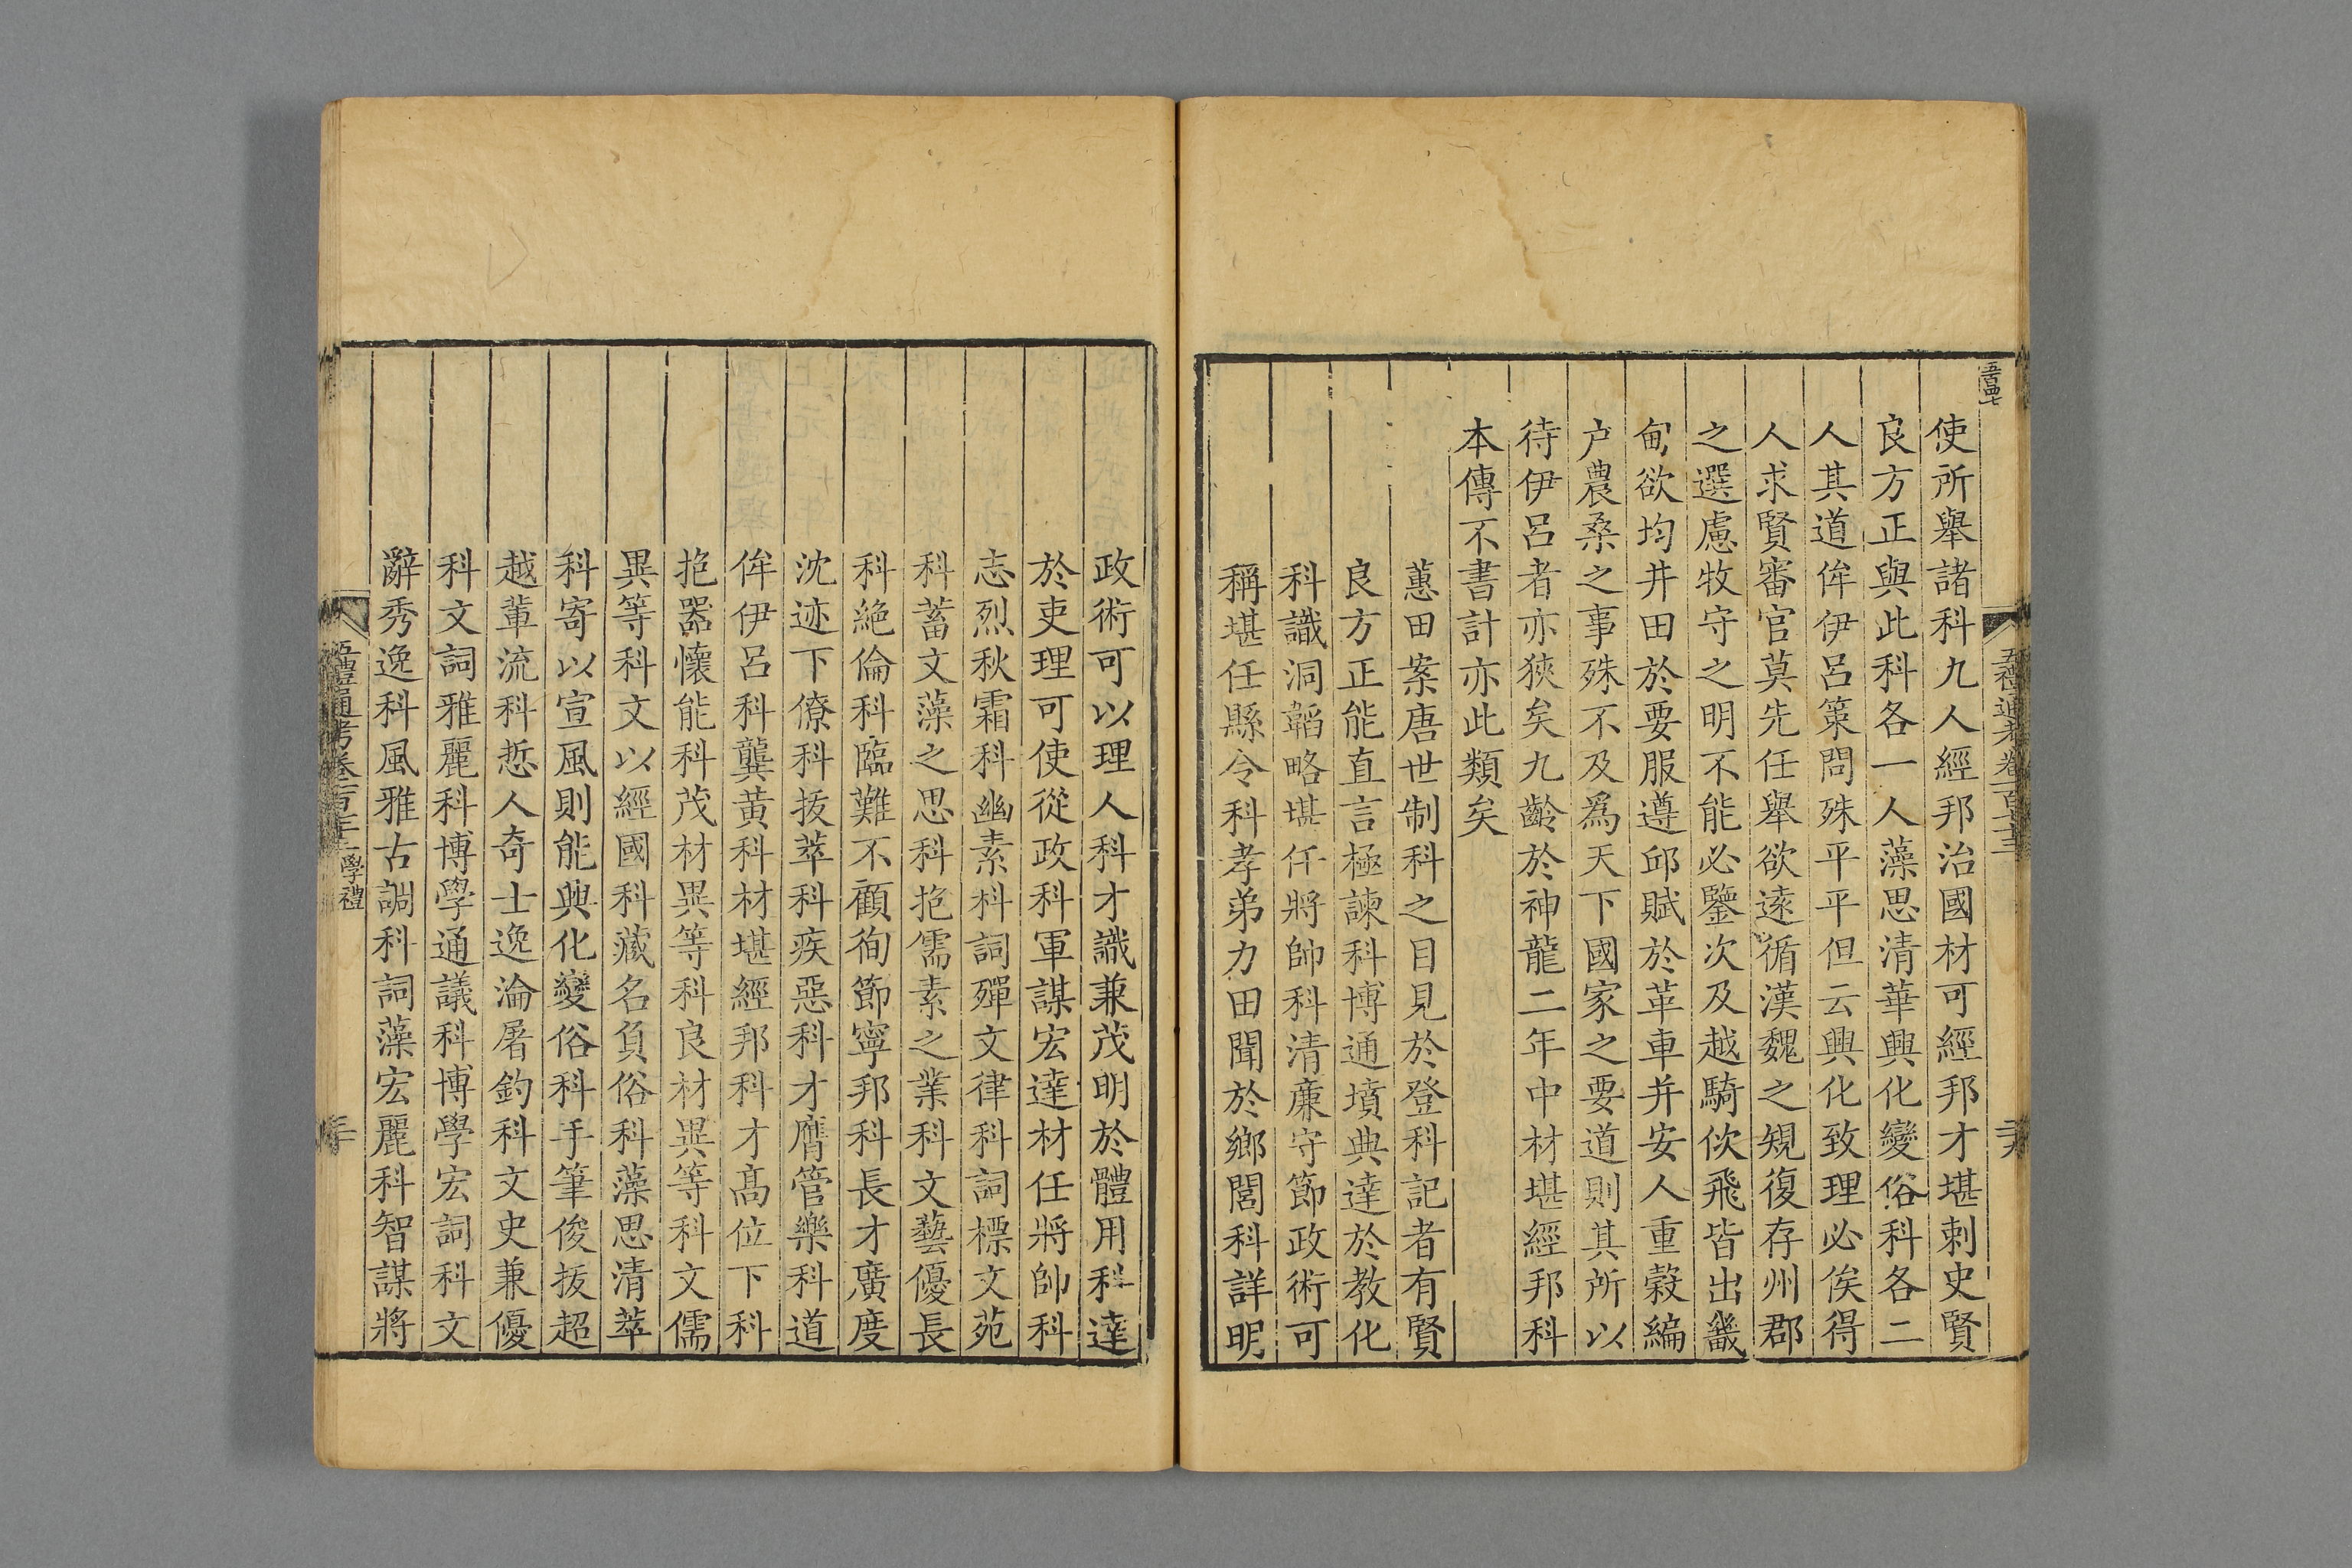 使所舉諸科九人經邦治國材可經邦才堪刺史賢
良方正與此科各一人藻思清華興化變俗科各二
人其道侔伊呂策問殊平平但云興化致理必俟得
人求賢審官莫先任舉欲遠循漢魏之規復存州郡
之選慮牧守之明不能必鑒次及越騎佽飛皆出畿
甸欲均井田於要服遵邱賦於革車并安人重穀編
户農桑之事殊不及爲天下國家之要道則其所以
待伊呂者亦狹矣九齡於神龍二年中材堪經邦科
本傳不書計亦此類矣
蕙田案唐世制科之目見於登科記者有賢
良方正能直言極諫科博通墳典達於教化
科識洞韜略堪任將帥科清廉守節政術可
稱堪任縣令科孝弟力田聞於鄉閭科詳明
政術可以理人科才識兼茂明於體用科達
於吏理可使從政科軍謀宏達材任將帥科
志烈秋霜科幽素科詞殫文律科詞標文苑
科蓄文藻之思科抱儒素之業科文藝優長
科絶倫科臨難不顧徇節寧邦科長才廣度
沈迹下僚科拔萃科疾惡科才膺管樂科道
侔伊呂科龔黃科材堪經邦科才高位下科
抱器懷能科茂材異等科良材異等科文儒
異等科文以經國科藏名負俗科藻思清萃
科寄以宣風則能興化變俗科手筆俊拔超
越輩流科悊人奇士逸淪屠釣科文史兼優
科文詞雅麗科博學通議科博學宏詞科文
辭秀逸科風雅古調科詞藻宏麗科智謀將
五禮通考卷一百七十三 學禮